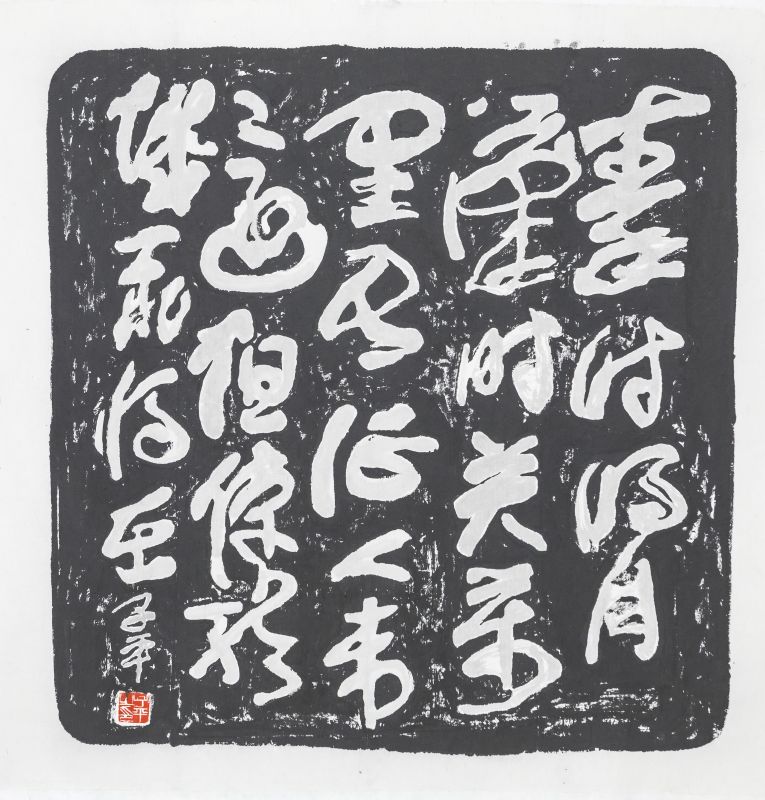 秦时明月
漢时关万
里长征人未
還但使龙
城飛将在
子平